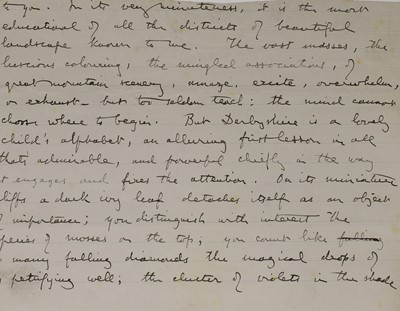 to you. In its very minuteness, it is the most
educational of all the districts of beautiful
landscape known to me. The vast masses, the
luscious colouring, the mingled associations, of
great mountain scenery, amaze, excite, overwhelm,
or exhaust – but too seldom teach: the mind cannot
choose where to begin. But Derbyshire is a lovely
child's alphabet, an alluring first lesson in all
thats admirable, and powerful chiefly in the way
it engages and fires the attention. On its miniature
cliffs a dark ivy leaf detaches itself as an object
f importance; you distinguish with interest the
species of mosses on the top; you count like falling
o many falling diamonds the magical drops of
petrifying well; the cluster of violets in the shade